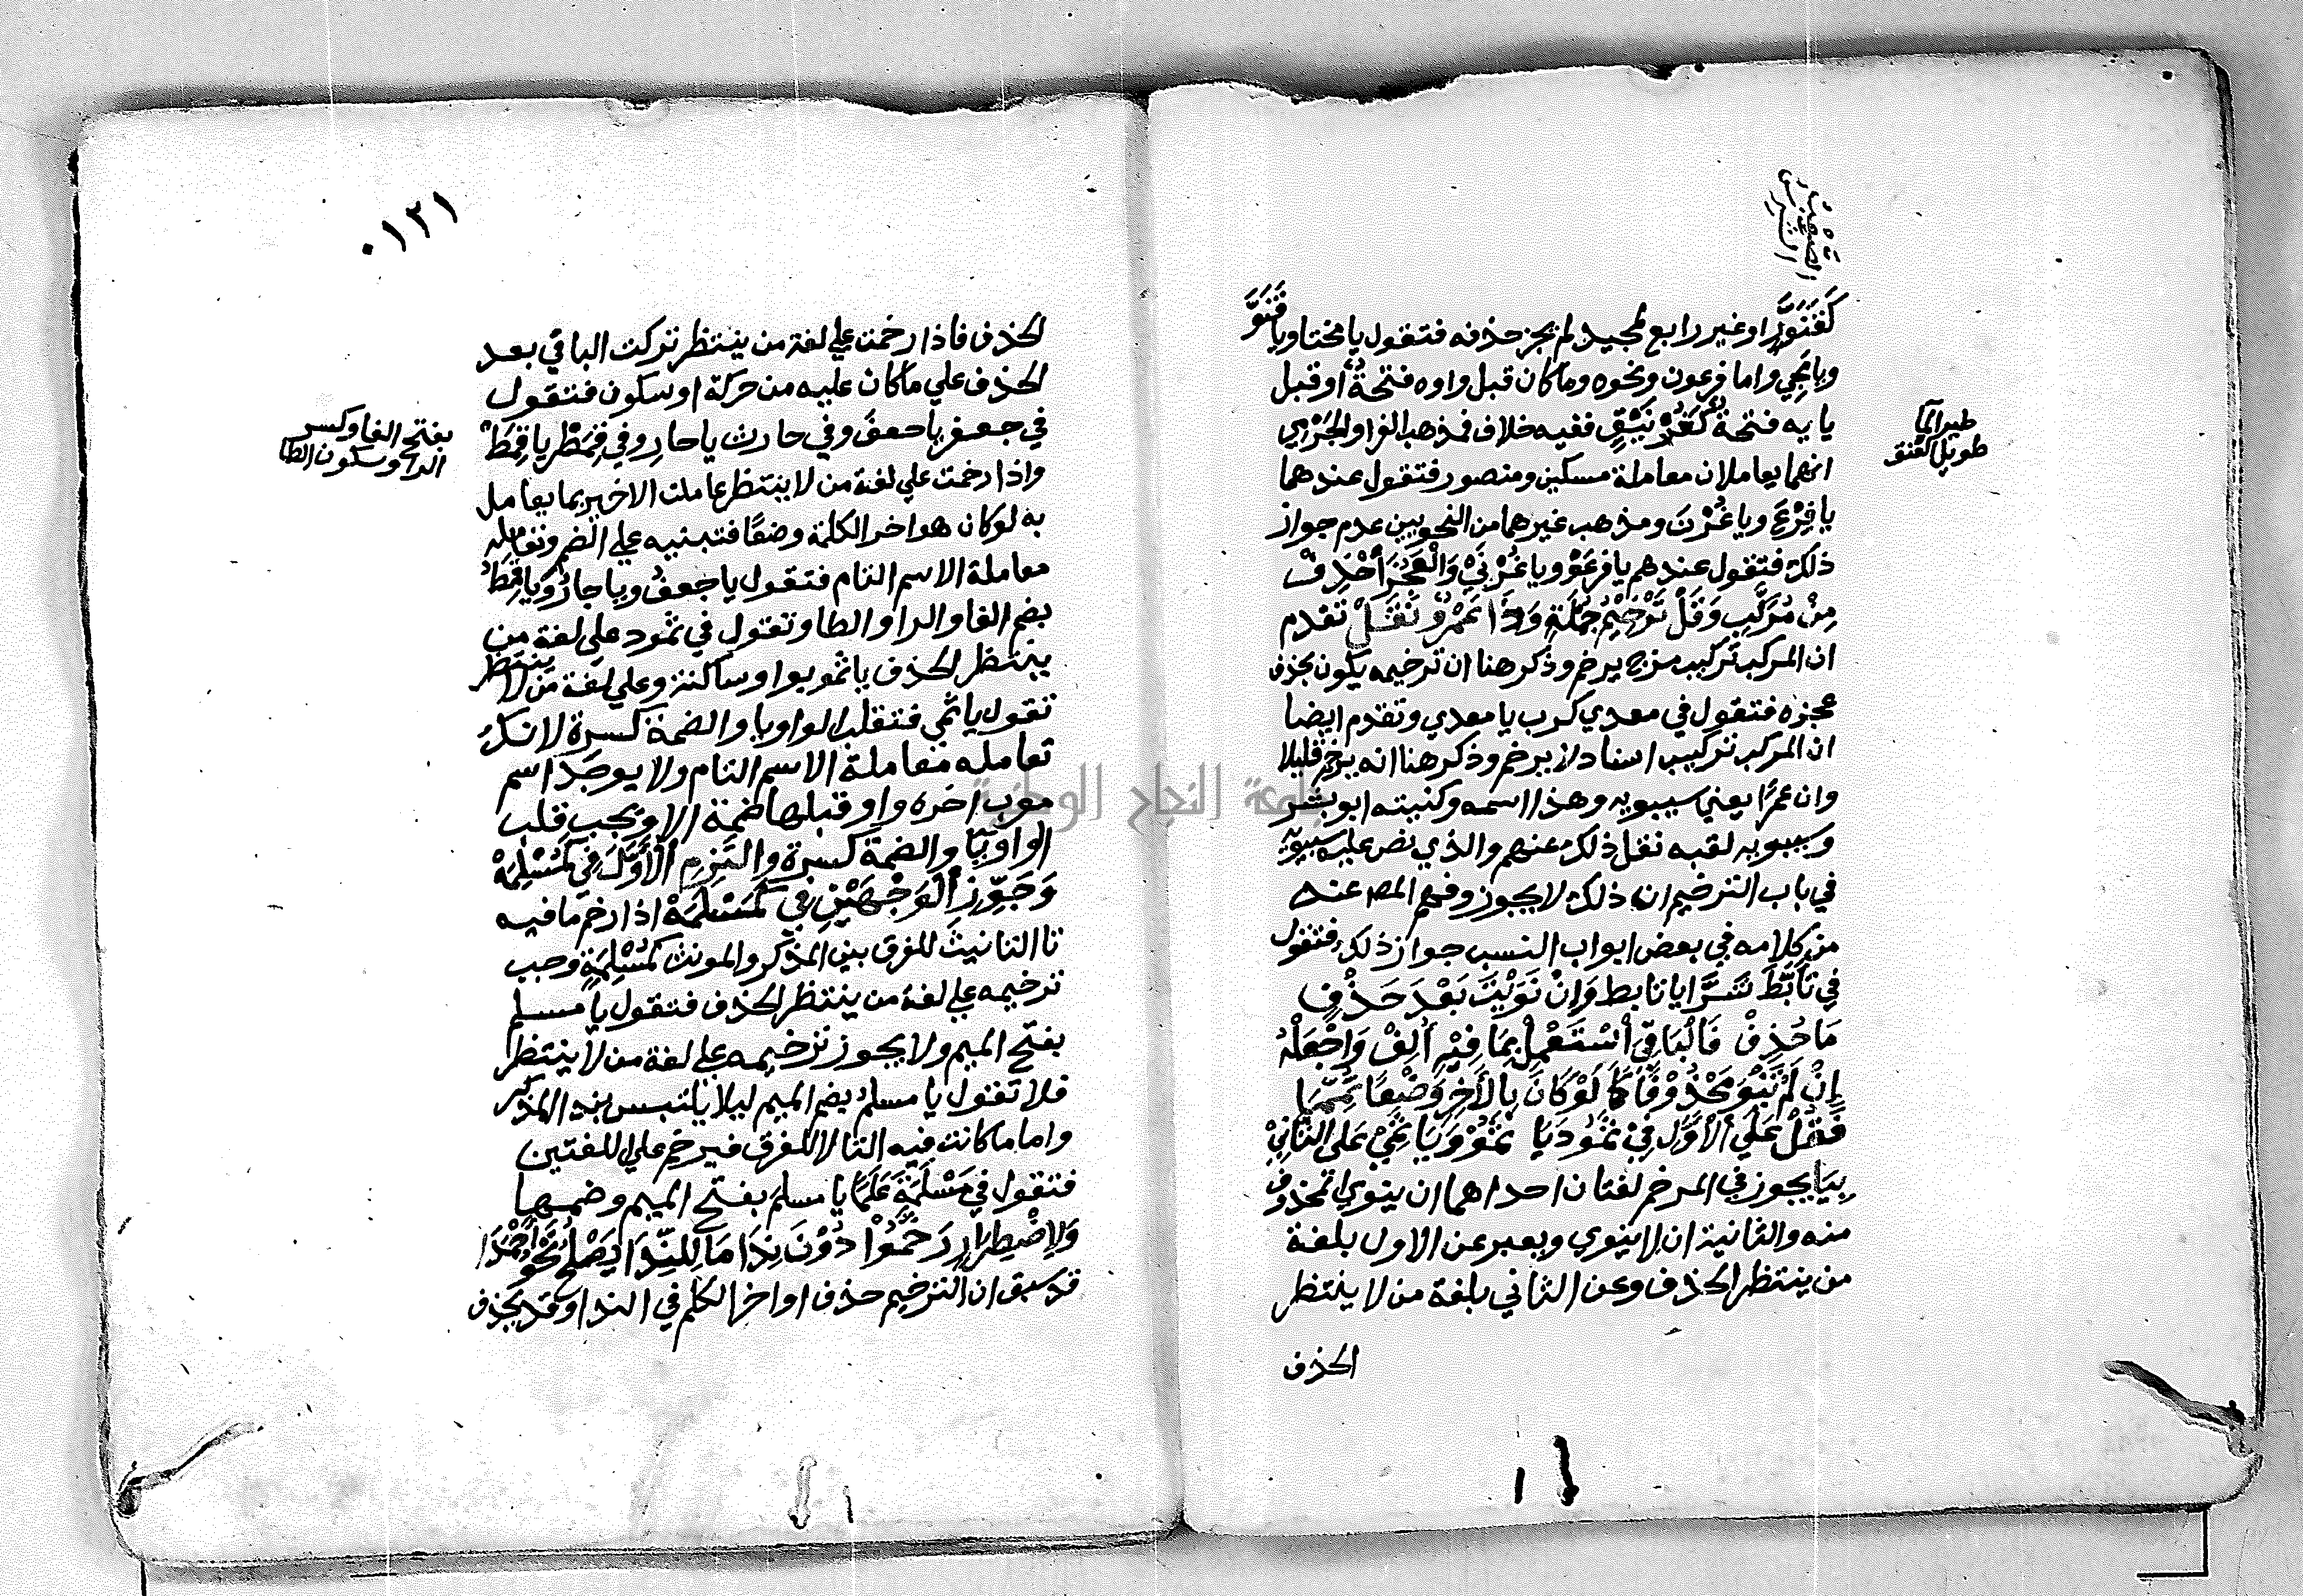 كَقَنَوَّرٍ او غير رابع كمجيد لم يجز حذفه فتقول يا مختا ويا قَنَوَّ
ويا مجي واما فرعون ونحوه وما كان قبل واوه فتحةٌ او قبل
يايه فتحة كَغُرْنَيْقٍ ففيه خلاف فمذهب الفرا والجَرْمي
انهما يعاملان معاملة مسكين ومنصور فتقول عندهما
يا فِرْعَ ويا غُرْنَ ومذهب غيرهما من النحويين عدم جواز
ذلك فتقول عندهم يا فرعَوْ ويا غُرْنَيْ وَالْعَجُزَ أحْذِفْ
مِنْ مُرَكَّبٍ وَقَلْ تَرْخِيْمُ جُمْلَةٍ وَذَا عَمْرٌو نَقَلْ تقدم
ان المركب تركيب مزج يرخم وذكر هنا ان ترخيمه يكون بحذف
عجزه فتقول في معدي كرب يا معدي وتقدم ايضا
ان المركب تركيب اسناد لا يرخم وذكر هنا انه يرخم قليلا
وان عمرًا يعني سيبويه وهذا اسمه وكنيته ابو بشر
وسيبويه لقبه نقل ذلك عنهم والذي نص عليه سيبويه
في باب الترخيم ان ذلك لا يجوز وفهم المص عنه
من كلامه في بعض ابواب النسب جواز ذلك فتقول
في تَأَبَّطَ شَرَّا يا تابط وَإِنْ نَوَيْتَ بَعْدَ حَذْفٍ
مَا حُذِفْ فَالْبَاقِيَ اسْتَعْمِلْ بِمَا فِيْهِ أُلِفْ وَاجْعَلْهُ
إِنْ لَمْ تَنْوِ مَحْذُوْفًا كَمَا لَوْ كَانَ بِالْآخِرِ وَضْعًا تُمِّمَا
فَقُلْ عَلَى الْأَوَّلِ فِيْ ثَمُودَ يَا ثَمُوْ وَيَا ثَمِيْ عَلَى الثَّانِيْ
بِيَا يجوز في المرخم لغتان احداهما ان ينوي المحذوف
منه والثانية ان لا ينوي ويعبر عن الاول بلغة
من ينتظر الحذف وعن الثاني بلغة من لا ينتظر
الحذف
طير الما
طويل العنق
٠١٢١
الحذف فاذا رخمت علي لغة من ينتظر تركت الباقي بعد
الحذف علي ما كان عليه من حركة او سكون فتقول
في جعفر يا جعفَ وفي حارث يا حارِ وفي قِمَطْر يا قِمَطْ
واذا رخمت علي لغة من لا ينتظر عاملت الاخير بما يعامل
به لو كان هو اخر الكلمة وضعًا فتبنيه علي الضم وتعامله
معاملة الاسم التام فتقول يا جعفُ ويا حارُ ويا قِمَطُ
بضم الفا والرا والطا وتقول في ثمود علي لغة من
ينتظر الحذف يا ثمو بواو ساكنة وعلي لغة من لا ينتظر
تقول يا ثمي فتقلب الواو يا والضمة كسرة لانك
تعامله معاملة الاسم التام ولا يوجد اسم
معرب اخره واو قبلها ضمة الا ويجب قلب
الواو يًا والضمة كسرة وَالْتَزِمِ الْأَوَّلَ فِي كَمُسْلِمَهْ
وَجَوِّزِ الْوَجْهَيْنِ فِي كَمَسْلَمَهْ اذا رخم ما فيه
تا التانيث للفرق بين المذكر والمونث كمُسْلِمَةٍ وجب
ترخيمه علي لغة من ينتظر الحذف فتقول يا مسلم
بفتح الميم ولا يجوز ترخيمه علي لغة من لا ينتظر
فلا تقول يا مسلمُ بضم الميم ليلا يلتبس بندا المذكر
واما ما كانت فيه التا لا للفرق فيرخم علي اللغتين
فتقول في مَسْلَمَةَ عَلَمًا يا مسلم بفتح الميم وضمها
وَلِاضْطِرَارٍ رَخَّمُوْا دُوْنَ نِدَا مَا لِلنِّدَا يَصْلُحُ نَحْوُ أَحْمَدَا
قد سبق ان الترخيم حذف اواخر الكلم في الندا وقد يحذف
بفتح الفا وكسر
الرا وسكون الطا
جامعة النجاح الوطنية